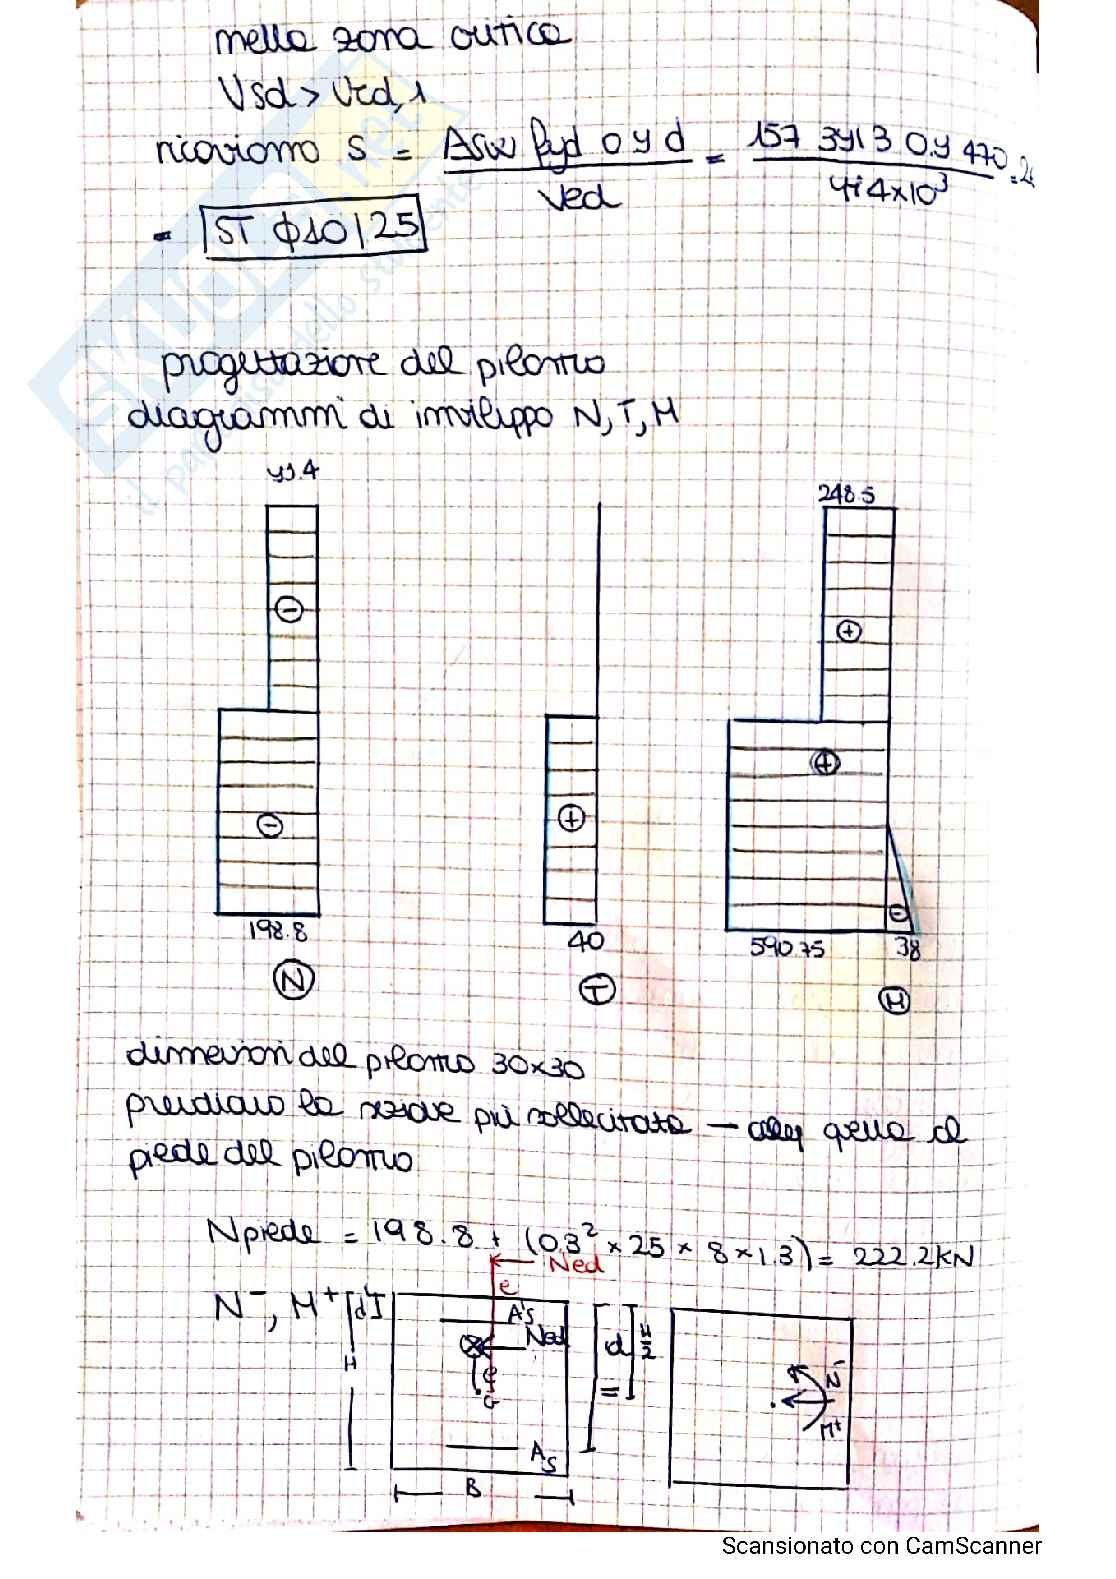 nella zona critica
Vsd > Vrd,1
ricaviamo s = Asw fyd 0.9 d / Ved = 157 3913 0.9 470 / 474x10³
= ST φ10/25
progettazione del pilastro
diagrammi di inviluppo N, T, M
248.5
⊖ ⊕
⊕
⊖ ⊕
⊖
198.8 40 590.75 38
N T M
dimensioni del pilastro 30x30
prendiamo la sezione più sollecitata – quella al
piede del pilastro
Npiede = 198.8 + (0.3² x 25 x 8 x 1.3) = 222.2 kN
Ned
e
N⁻, M⁺ d' A's
Ned d H/2
H e N⁻
G M⁺
As
B
Scansionato con CamScanner